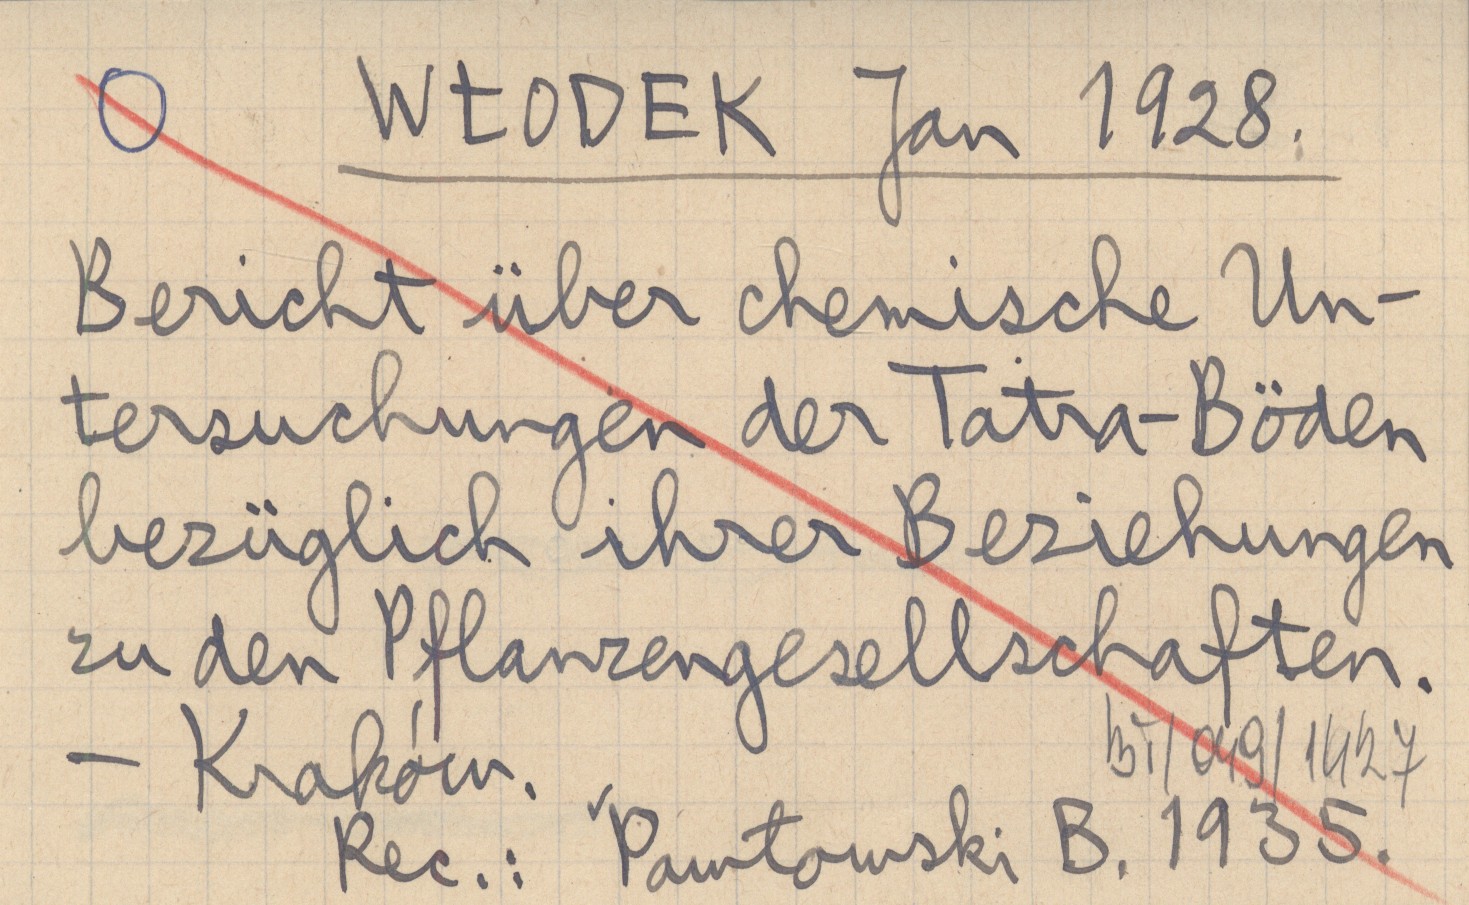 WŁODEK Jan 1928.
Bericht über chemische Un-
tersuchungen der Tatra-Böden
bezüglich ihrer Beziehungen
zu den Pflanzengesellschaften.
– Kraków.
Rec.: Pawłowski B. 1935.